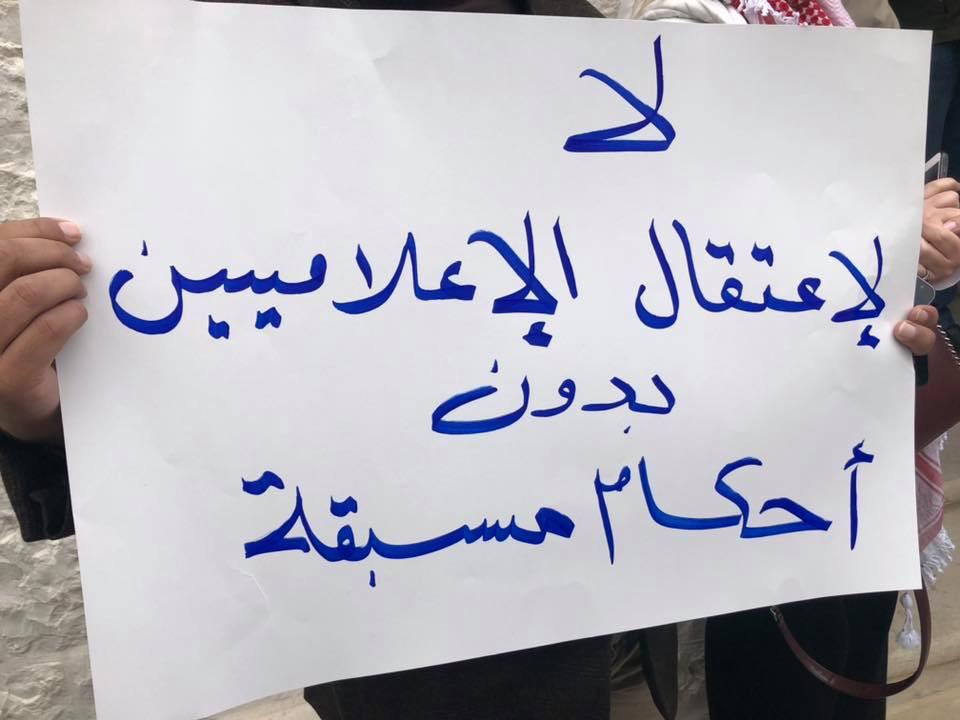 لا
لإعتقال الإعلاميين
بدون
أحكام مسبقة